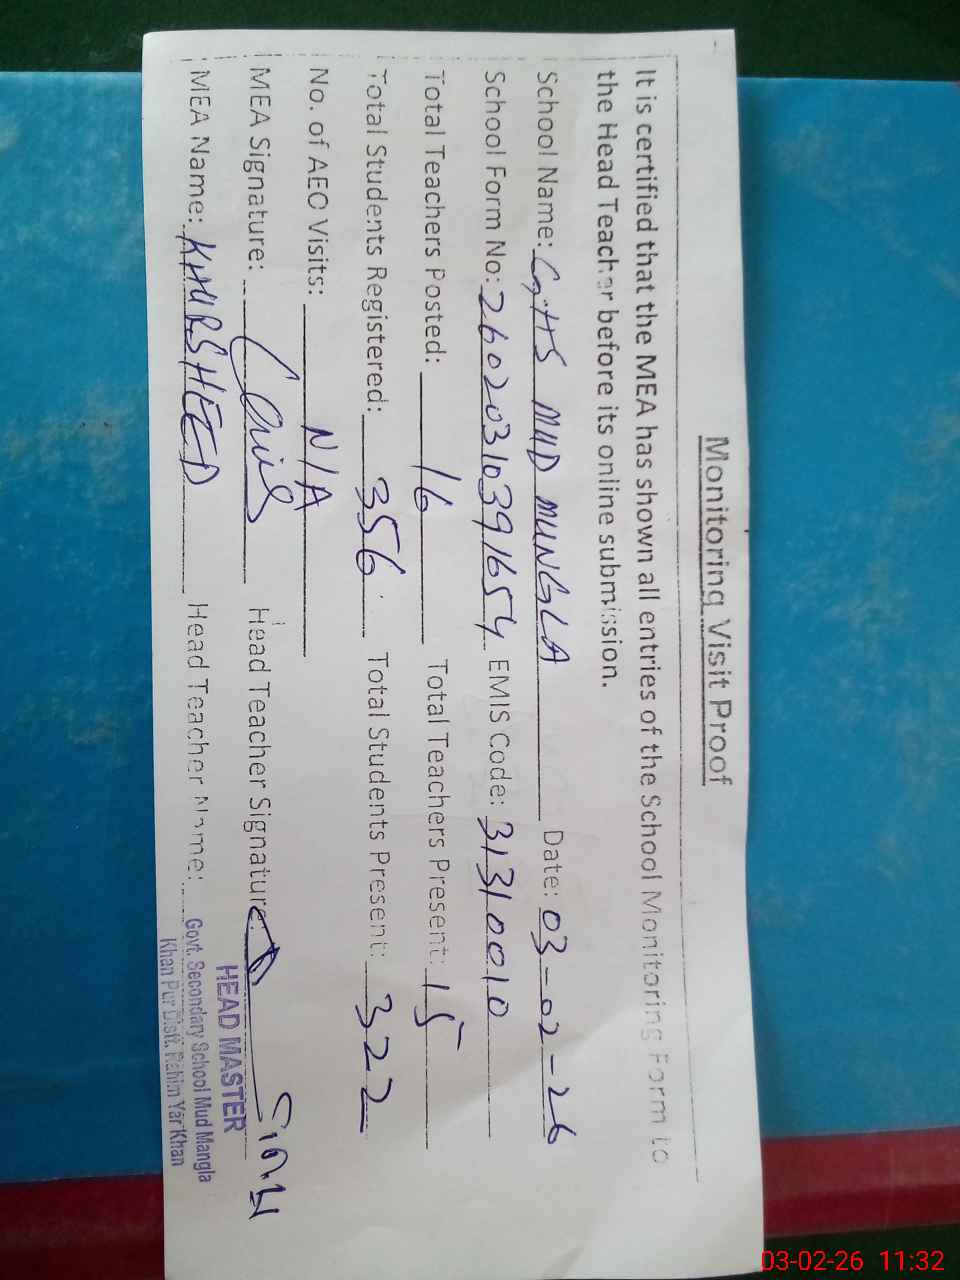 Monitoring Visit Proof
It is certified that the MEA has shown all entries of the School Monitoring Form to
the Head Teacher before its online submission.
School Name: GHS MUD MUNGLA Date: 03-02-26
School Form No: 26020310391654 EMIS Code: 31310010
Total Teachers Posted: 16 Total Teachers Present: 15
Total Students Registered: 356 Total Students Present: 322
No. of AEO Visits: N/A
MEA Signature: Head Teacher Signature:
MEA Name: KHURSHEED Head Teacher Name:
HEAD MASTER
Govt. Secondary School Mud Mangla
Khan Pur Distt. Rahim Yar Khan
03-02-26 11:32